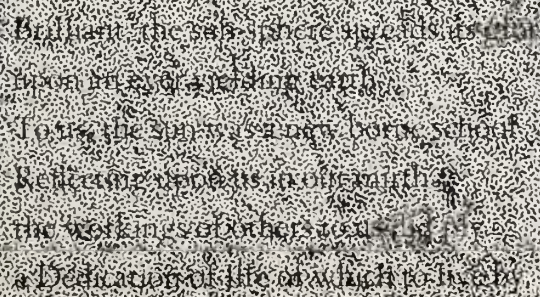 Brilliant, the sun-sphere spreads its
upon an ever yielding earth.
To us, the sun was a new borne school
Reflecting upon us in our mirth
the workings of others to us
a Dedication of life of which to live by